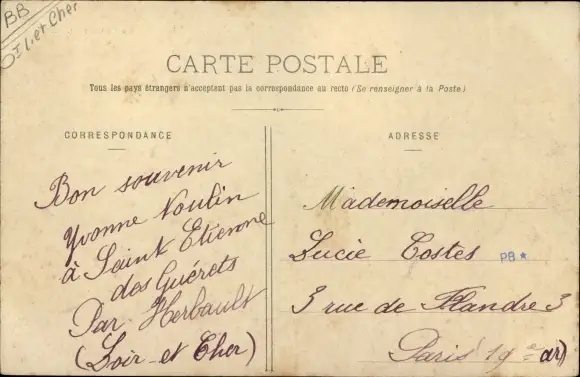 BB
Loir et Cher
CARTE POSTALE
Tous les pays étrangers n'acceptent pas la correspondance au recto (Se renseigner à la Poste)
CORRESPONDANCE
Bon souvenir
Yvonne Noulin
à Saint Etienne
des Guérets
Par Herbault
(Loir et Cher)
ADRESSE
Mademoiselle
Lucie Costes
PB*
3 rue de Flandre 3
Paris 19e ar)